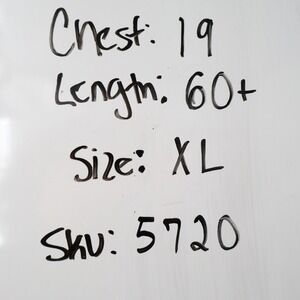 Chest: 19
Length: 60+
Size: XL
Sku: 5720